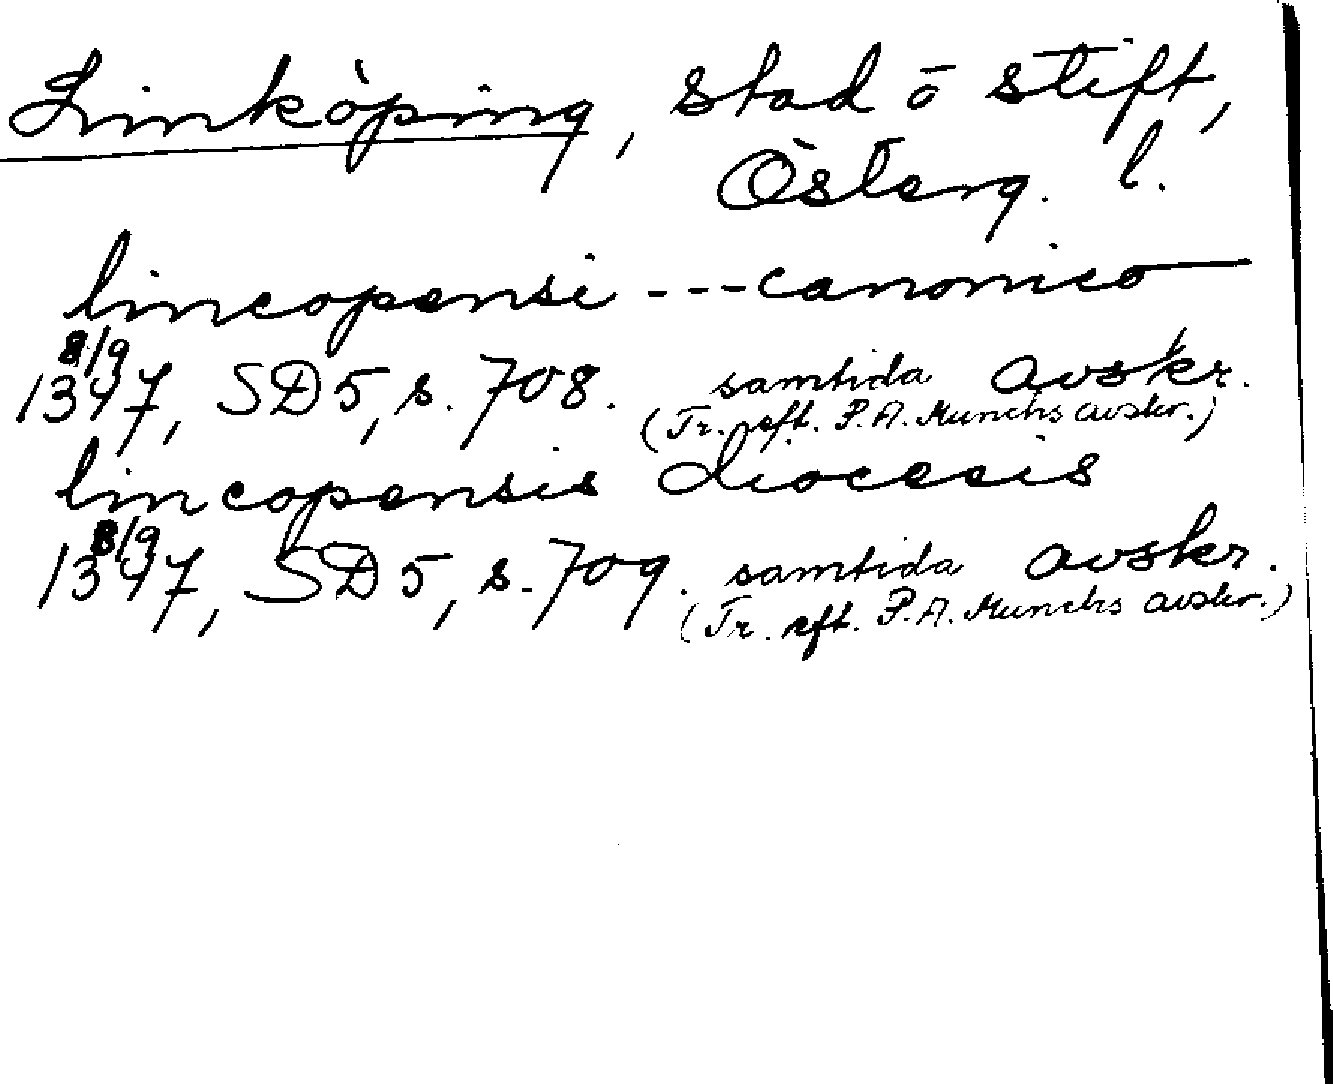 Linköping, stad ō stift,
Österg. l.
lincopensi --- canonico
8/9
1347, SD 5, s. 708. samtida avskr.
(Tr. eft. P. A. Munchs avskr.)
lincopensis diocesis
8/9
1347, SD 5, s. 709. samtida avskr.
(Tr. eft. P. A. Munchs avskr.)